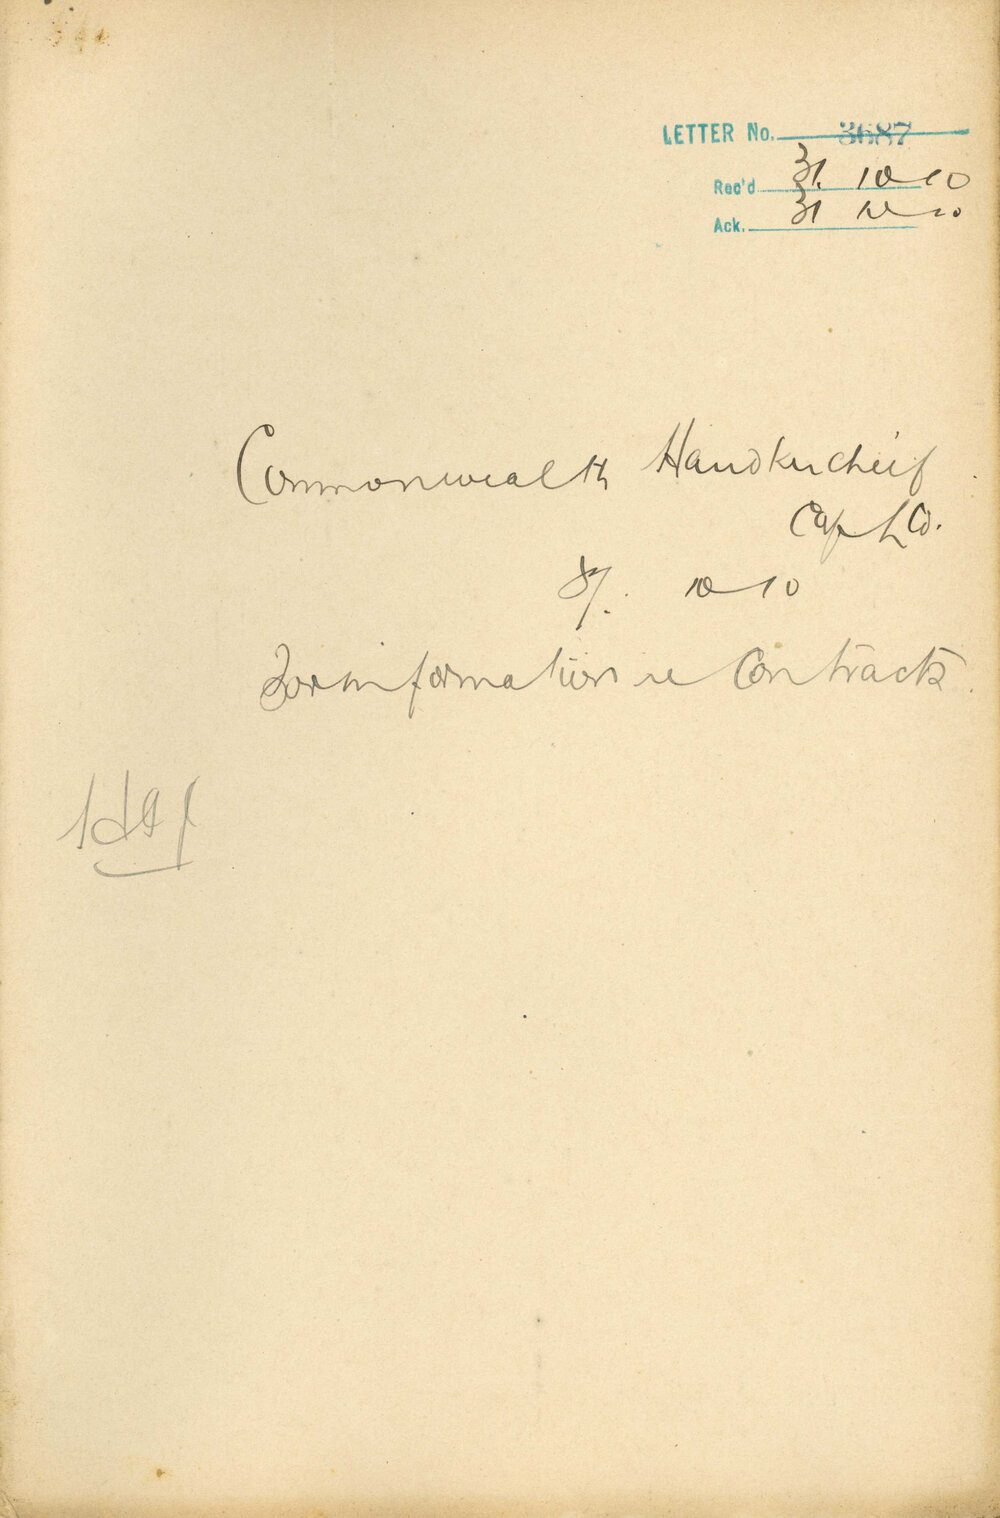 LETTER No. 3687
Rec'd 31. 10 10
Ack. 31 10 10
Commonwealth Handkercheif
Cap Co.
10 10
For information re Contracts